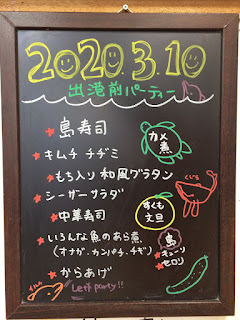 2020.3.10
出港前パーティー
★島寿司
カメ煮
★キムチ チヂミ
★もち入り和風グラタン
★シーザーサラダ
くじら
★中華寿司
すくも文旦
★いろんな魚のあら煮
(オナガ、カンパチ、チギ)
島キューリ
セロリ
★からあげ
Let's party!!